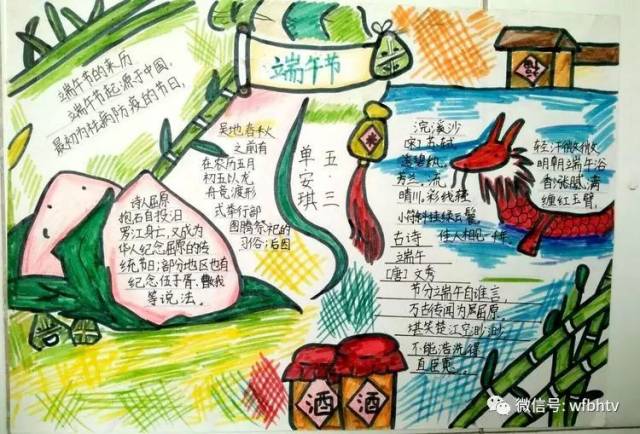 端午节
端午节的来历
端午节起源于中国,
最初为祛病防疫的节日,
吴地春秋
之前有
在农历五月
初五以龙
舟竞渡形
式举行部
图腾祭祀的
习俗;后因
诗人屈原
抱石自投汨
罗江身亡,又成为
华人纪念屈原的传
统节日;部分地区也有
纪念伍子胥、曹娥
等说法。
五·三
单安琪
浣溪沙
[宋]苏轼
轻汗微微
明朝端午浴
芳兰,流
香涨腻满
晴川,彩线轻
缠红玉臂,
小符斜挂绿云鬟
佳人相见一千年
古诗
端午
[唐]文秀
节分端午自谁言,
万古传闻为屈原
堪笑楚江空渺渺
不能洗得
直臣冤。
酒
酒
微信号: wfbhtv